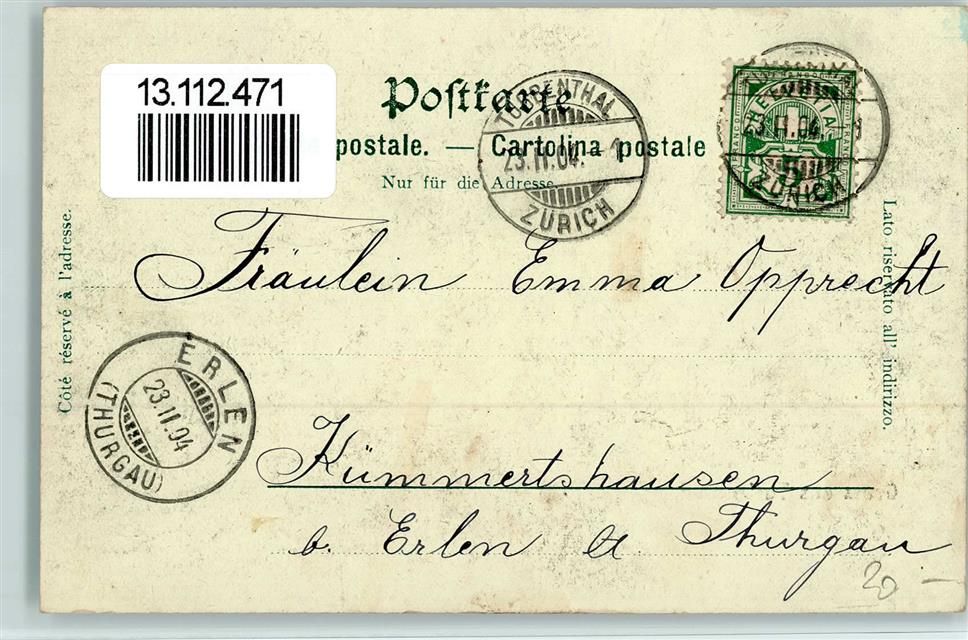 13.112.471
Postkarte
postale. — Cartolina postale
Nur für die Adresse.
TURBENTHAL
23.II.04.
ZÜRICH
HELVETIA
FRANCO
5
ZÜRICH
Côté réservé à l'adresse.
Lato riservato all' indirizzo.
Fräulein Emma Opprecht
ERLEN
23.II.04
(THURGAU)
Kümmertshausen
b. Erlen Ct Thurgau
20 –